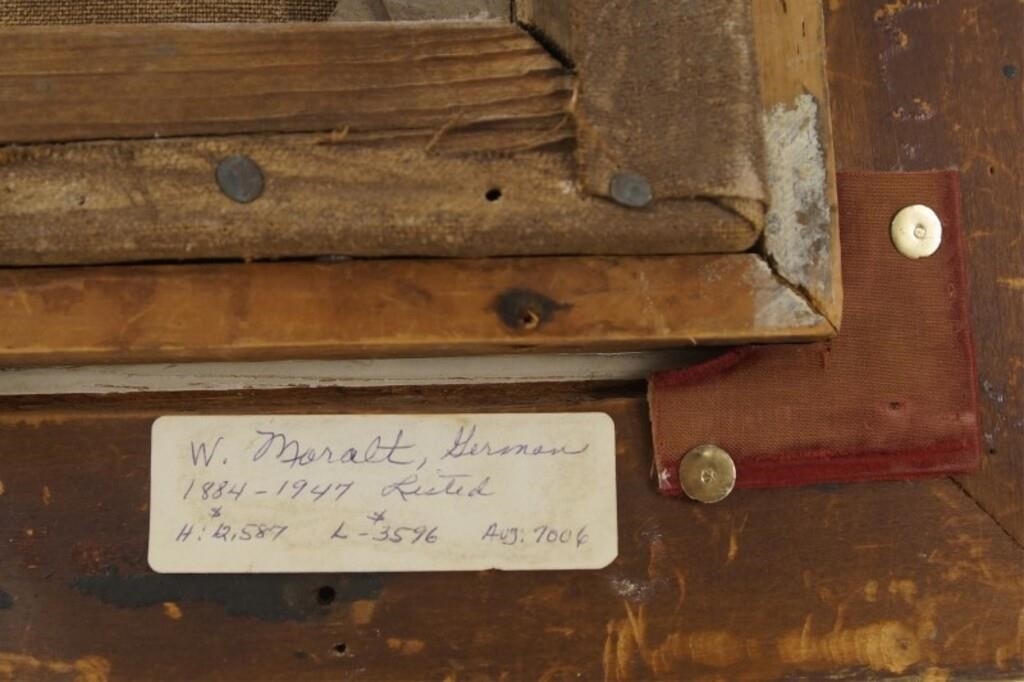 W. Moralt, German
1884-1947 Listed
H: $12,587 L-$3596 Avg: 7006